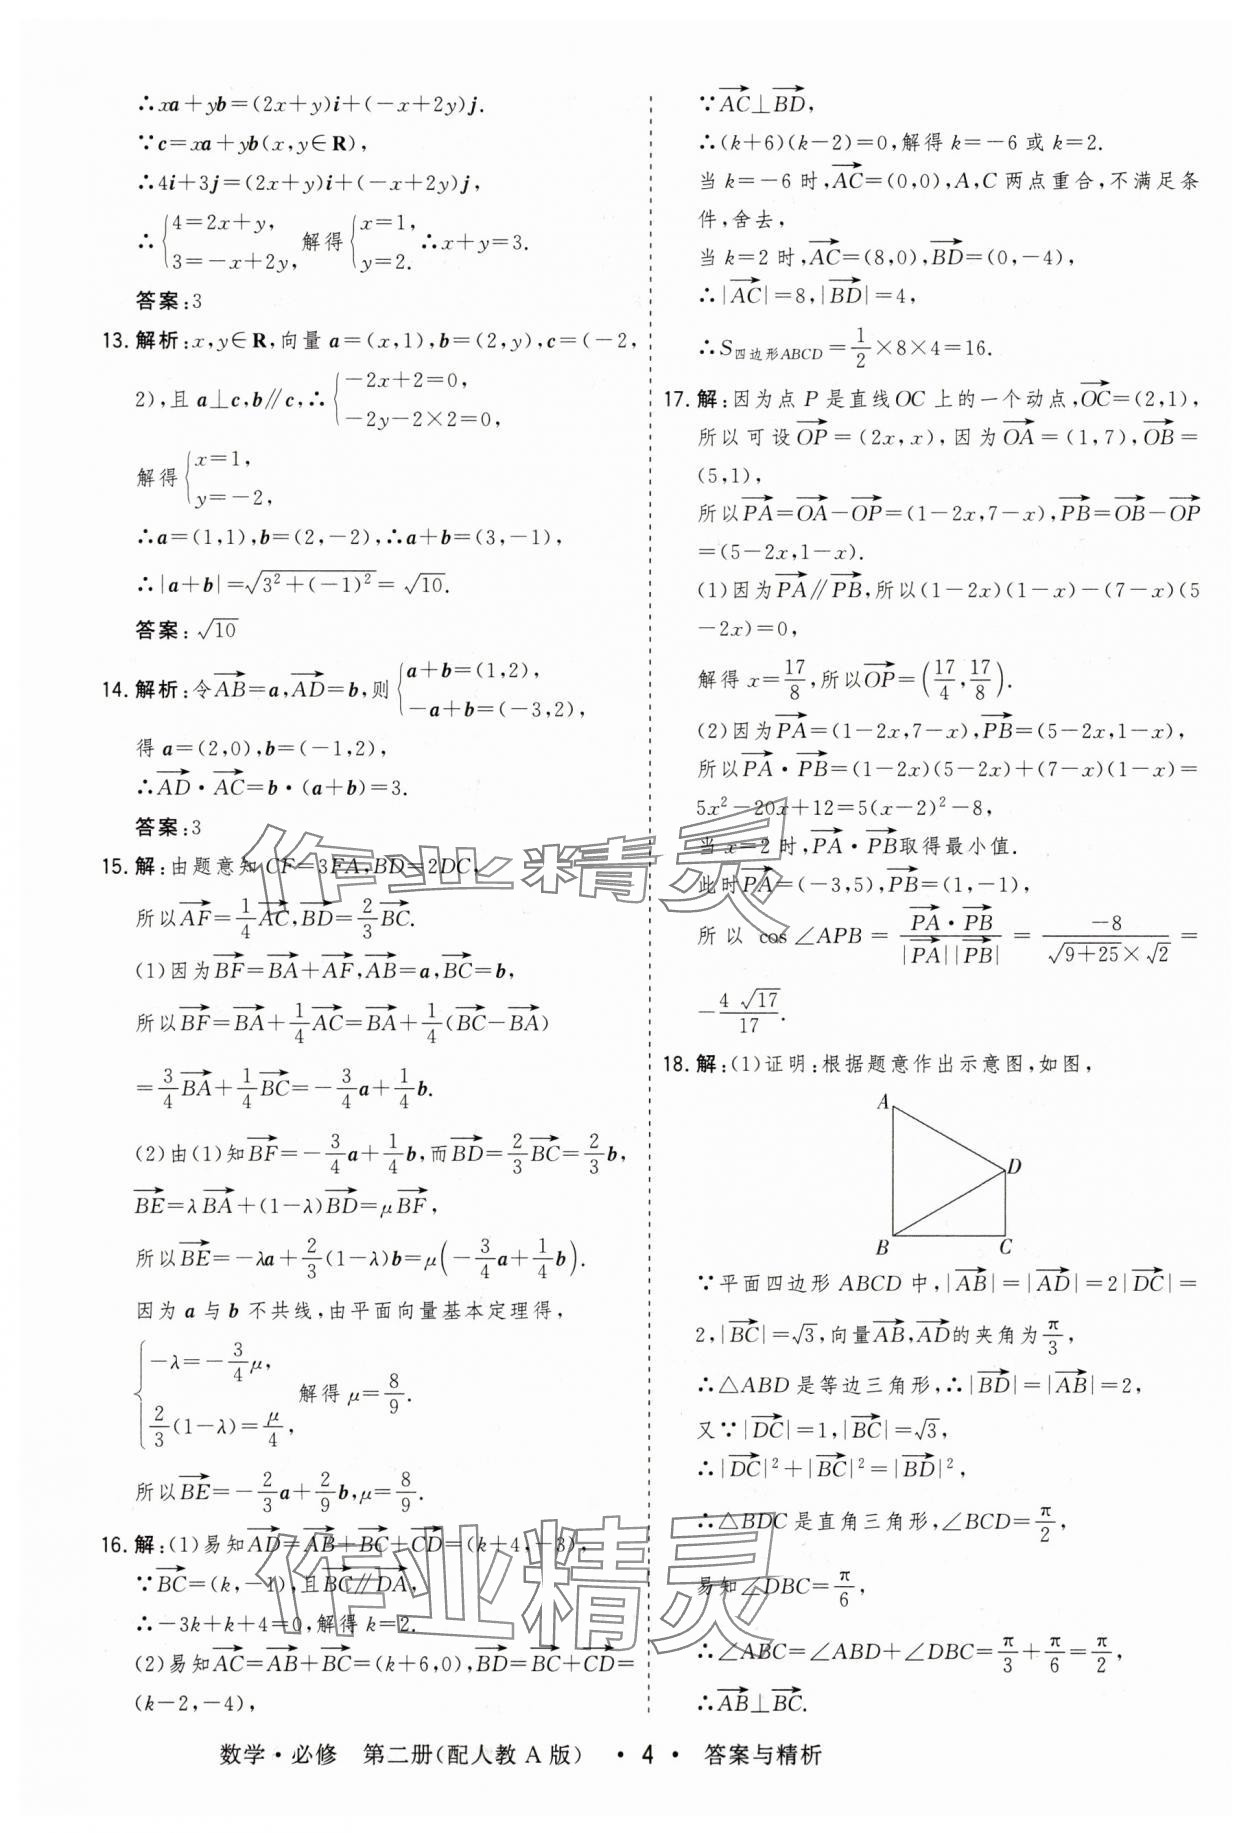 ∴xa+yb=(2x+y)i+(-x+2y)j.
∵c=xa+yb(x,y∈R),
∴4i+3j=(2x+y)i+(-x+2y)j,
∴{4=2x+y, 3=-x+2y, 解得{x=1, y=2. ∴x+y=3.
答案:3
13. 解析:x,y∈R,向量 a=(x,1),b=(2,y),c=(-2,
2),且 a⊥c,b∥c,∴{-2x+2=0, -2y-2×2=0,
解得{x=1, y=-2,
∴a=(1,1),b=(2,-2),∴a+b=(3,-1),
∴|a+b|=√(3²+(-1)²)=√10.
答案:√10
14. 解析:令$\overrightarrow{AB}$=a,$\overrightarrow{AD}$=b,则{a+b=(1,2), -a+b=(-3,2),
得 a=(2,0),b=(-1,2),
∴$\overrightarrow{AD}$·$\overrightarrow{AC}$=b·(a+b)=3.
答案:3
15. 解:由题意知 CF=3FA,BD=2DC,
所以$\overrightarrow{AF}$=$\frac{1}{4}\overrightarrow{AC}$,$\overrightarrow{BD}$=$\frac{2}{3}\overrightarrow{BC}$.
(1)因为$\overrightarrow{BF}$=$\overrightarrow{BA}$+$\overrightarrow{AF}$,$\overrightarrow{AB}$=a,$\overrightarrow{BC}$=b,
所以$\overrightarrow{BF}$=$\overrightarrow{BA}$+$\frac{1}{4}\overrightarrow{AC}$=$\overrightarrow{BA}$+$\frac{1}{4}$($\overrightarrow{BC}$-$\overrightarrow{BA}$)
=$\frac{3}{4}\overrightarrow{BA}$+$\frac{1}{4}\overrightarrow{BC}$=-$\frac{3}{4}$a+$\frac{1}{4}$b.
(2)由(1)知$\overrightarrow{BF}$=-$\frac{3}{4}$a+$\frac{1}{4}$b,而$\overrightarrow{BD}$=$\frac{2}{3}\overrightarrow{BC}$=$\frac{2}{3}$b,
$\overrightarrow{BE}$=λ$\overrightarrow{BA}$+(1-λ)$\overrightarrow{BD}$=μ$\overrightarrow{BF}$,
所以$\overrightarrow{BE}$=-λa+$\frac{2}{3}$(1-λ)b=μ(-$\frac{3}{4}$a+$\frac{1}{4}$b).
因为 a 与 b 不共线,由平面向量基本定理得,
{-λ=-$\frac{3}{4}$μ, $\frac{2}{3}$(1-λ)=$\frac{μ}{4}$, 解得 μ=$\frac{8}{9}$.
所以$\overrightarrow{BE}$=-$\frac{2}{3}$a+$\frac{2}{9}$b,μ=$\frac{8}{9}$.
16. 解:(1)易知$\overrightarrow{AD}$=$\overrightarrow{AB}$+$\overrightarrow{BC}$+$\overrightarrow{CD}$=(k+4,-3),
∵$\overrightarrow{BC}$=(k,-1),且$\overrightarrow{BC}$∥$\overrightarrow{DA}$,
∴-3k+k+4=0,解得 k=2.
(2)易知$\overrightarrow{AC}$=$\overrightarrow{AB}$+$\overrightarrow{BC}$=(k+6,0),$\overrightarrow{BD}$=$\overrightarrow{BC}$+$\overrightarrow{CD}$=
(k-2,-4),
∵$\overrightarrow{AC}$⊥$\overrightarrow{BD}$,
∴(k+6)(k-2)=0,解得 k=-6 或 k=2.
当 k=-6 时,$\overrightarrow{AC}$=(0,0),A,C 两点重合,不满足条
件,舍去,
当 k=2 时,$\overrightarrow{AC}$=(8,0),$\overrightarrow{BD}$=(0,-4),
∴|$\overrightarrow{AC}$|=8,|$\overrightarrow{BD}$|=4,
∴S四边形ABCD=$\frac{1}{2}$×8×4=16.
17. 解:因为点 P 是直线 OC 上的一个动点,$\overrightarrow{OC}$=(2,1),
所以可设$\overrightarrow{OP}$=(2x,x),因为$\overrightarrow{OA}$=(1,7),$\overrightarrow{OB}$=
(5,1),
所以$\overrightarrow{PA}$=$\overrightarrow{OA}$-$\overrightarrow{OP}$=(1-2x,7-x),$\overrightarrow{PB}$=$\overrightarrow{OB}$-$\overrightarrow{OP}$
=(5-2x,1-x).
(1)因为$\overrightarrow{PA}$∥$\overrightarrow{PB}$,所以(1-2x)(1-x)-(7-x)(5
-2x)=0,
解得 x=$\frac{17}{8}$,所以$\overrightarrow{OP}$=($\frac{17}{4}$,$\frac{17}{8}$).
(2)因为$\overrightarrow{PA}$=(1-2x,7-x),$\overrightarrow{PB}$=(5-2x,1-x),
所以$\overrightarrow{PA}$·$\overrightarrow{PB}$=(1-2x)(5-2x)+(7-x)(1-x)=
5x²-20x+12=5(x-2)²-8,
当 x=2 时,$\overrightarrow{PA}$·$\overrightarrow{PB}$取得最小值.
此时$\overrightarrow{PA}$=(-3,5),$\overrightarrow{PB}$=(1,-1),
所以 cos∠APB=$\frac{\overrightarrow{PA}·\overrightarrow{PB}}{|\overrightarrow{PA}||\overrightarrow{PB}|}$=$\frac{-8}{\sqrt{9+25}×\sqrt{2}}$=
-$\frac{4\sqrt{17}}{17}$.
18. 解:(1)证明:根据题意作出示意图,如图,
A
D
B C
∵平面四边形 ABCD 中,|$\overrightarrow{AB}$|=|$\overrightarrow{AD}$|=2|$\overrightarrow{DC}$|=
2,|$\overrightarrow{BC}$|=√3,向量$\overrightarrow{AB}$,$\overrightarrow{AD}$的夹角为$\frac{π}{3}$,
∴△ABD 是等边三角形,∴|$\overrightarrow{BD}$|=|$\overrightarrow{AB}$|=2,
又∵|$\overrightarrow{DC}$|=1,|$\overrightarrow{BC}$|=√3,
∴|$\overrightarrow{DC}$|²+|$\overrightarrow{BC}$|²=|$\overrightarrow{BD}$|²,
∴△BDC 是直角三角形,∠BCD=$\frac{π}{2}$,
易知∠DBC=$\frac{π}{6}$,
∴∠ABC=∠ABD+∠DBC=$\frac{π}{3}$+$\frac{π}{6}$=$\frac{π}{2}$,
∴$\overrightarrow{AB}$⊥$\overrightarrow{BC}$.
作业精灵
作业精灵
数学·必修 第二册(配人教 A 版) ·4· 答案与精析